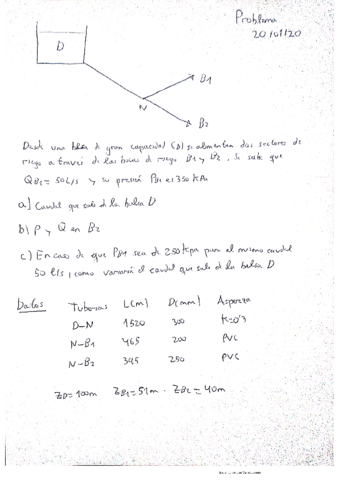 Problema
20/01/20
D
B1
N
B2
Desde una balsa d gran capacidad (D) se alimentan dos sectores de
riego a través de las bocas d riego B1 y B2, se sabe que
QB1 = 50 L/s y su presión PB1 es 350 KPa
a) Caudal que sale d la balsa D
b) P y Q en B2
c) En caso de que PB1 sea de 250 Kpa para el mismo caudal
50 l/s, como variará el caudal que sale d la balsa D
Datos Tuberías L(m) D(mm) Aspereza
D-N 1520 300 K=0'3
N-B1 465 200 PVC
N-B2 345 250 PVC
ZD=100m ZB1=51m · ZB2=40m